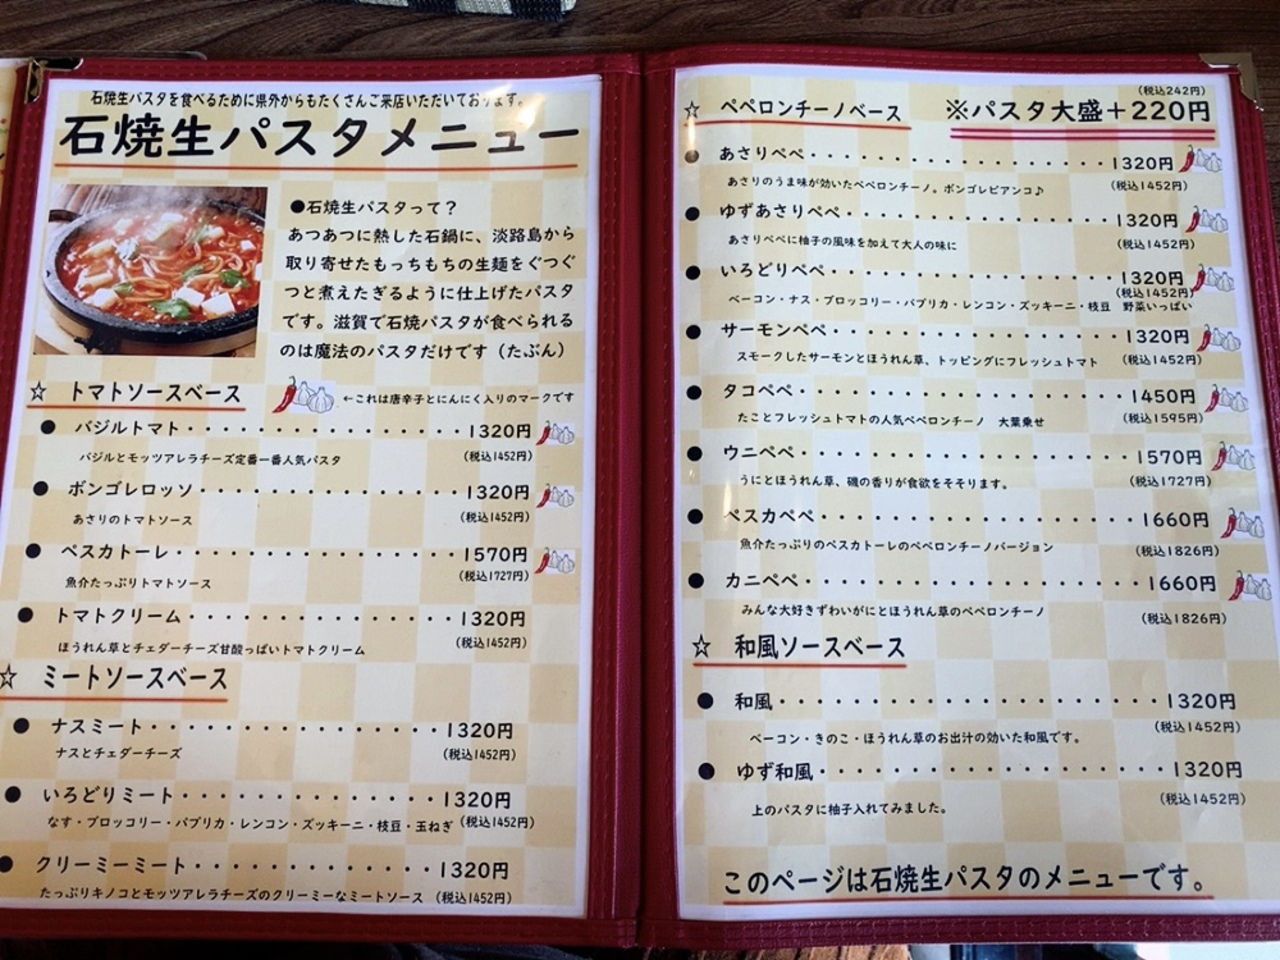 石焼生パスタを食べるために県外からもたくさんご来店いただいております。
石焼生パスタメニュー
●石焼生パスタって？
あつあつに熱した石鍋に、淡路島から
取り寄せたもっちもちの生麺をぐつぐ
つと煮えたぎるように仕上げたパスタ
です。滋賀で石焼パスタが食べられる
のは魔法のパスタだけです（たぶん）
☆ トマトソースベース ←これは唐辛子とにんにく入りのマークです
● バジルトマト・・・・・・・・・・・・・・・1320円
バジルとモッツアレラチーズ定番一番人気パスタ (税込1452円)
● ボンゴレロッソ・・・・・・・・・・・・・・1320円
あさりのトマトソース (税込1452円)
● ペスカトーレ・・・・・・・・・・・・・・・1570円
魚介たっぷりトマトソース (税込1727円)
● トマトクリーム・・・・・・・・・・・・・・1320円
ほうれん草とチェダーチーズ甘酸っぱいトマトクリーム (税込1452円)
☆ ミートソースベース
● ナスミート・・・・・・・・・・・・・・・1320円
ナスとチェダーチーズ (税込1452円)
● いろどりミート・・・・・・・・・・・・・1320円
なす・ブロッコリー・パプリカ・レンコン・ズッキーニ・枝豆・玉ねぎ (税込1452円)
● クリーミーミート・・・・・・・・・・・・1320円
たっぷりキノコとモッツアレラチーズのクリーミーなミートソース (税込1452円)
(税込242円)
☆ ペペロンチーノベース ※パスタ大盛＋220円
● あさりペペ・・・・・・・・・・・・・・・・1320円
あさりのうま味が効いたペペロンチーノ。ボンゴレビアンコ♪ (税込1452円)
● ゆずあさりペペ・・・・・・・・・・・・・・1320円
あさりペペに柚子の風味を加えて大人の味に (税込1452円)
● いろどりペペ・・・・・・・・・・・・・・・1320円
(税込1452円)
ベーコン・ナス・ブロッコリー・パプリカ・レンコン・ズッキーニ・枝豆 野菜いっぱい
● サーモンペペ・・・・・・・・・・・・・・・1320円
スモークしたサーモンとほうれん草、トッピングにフレッシュトマト (税込1452円)
● タコペペ・・・・・・・・・・・・・・・・・1450円
たことフレッシュトマトの人気ペペロンチーノ 大葉乗せ (税込1595円)
● ウニペペ・・・・・・・・・・・・・・・・・1570円
うにとほうれん草、磯の香りが食欲をそそります。 (税込1727円)
● ペスカペペ・・・・・・・・・・・・・・・・1660円
魚介たっぷりのペスカトーレのペペロンチーノバージョン (税込1826円)
● カニペペ・・・・・・・・・・・・・・・・・1660円
みんな大好きずわいがにとほうれん草のペペロンチーノ (税込1826円)
☆ 和風ソースベース
● 和風・・・・・・・・・・・・・・・・・・・1320円
ベーコン・きのこ・ほうれん草のお出汁の効いた和風です。 (税込1452円)
● ゆず和風・・・・・・・・・・・・・・・・・1320円
上のパスタに柚子入れてみました。 (税込1452円)
このページは石焼生パスタのメニューです。